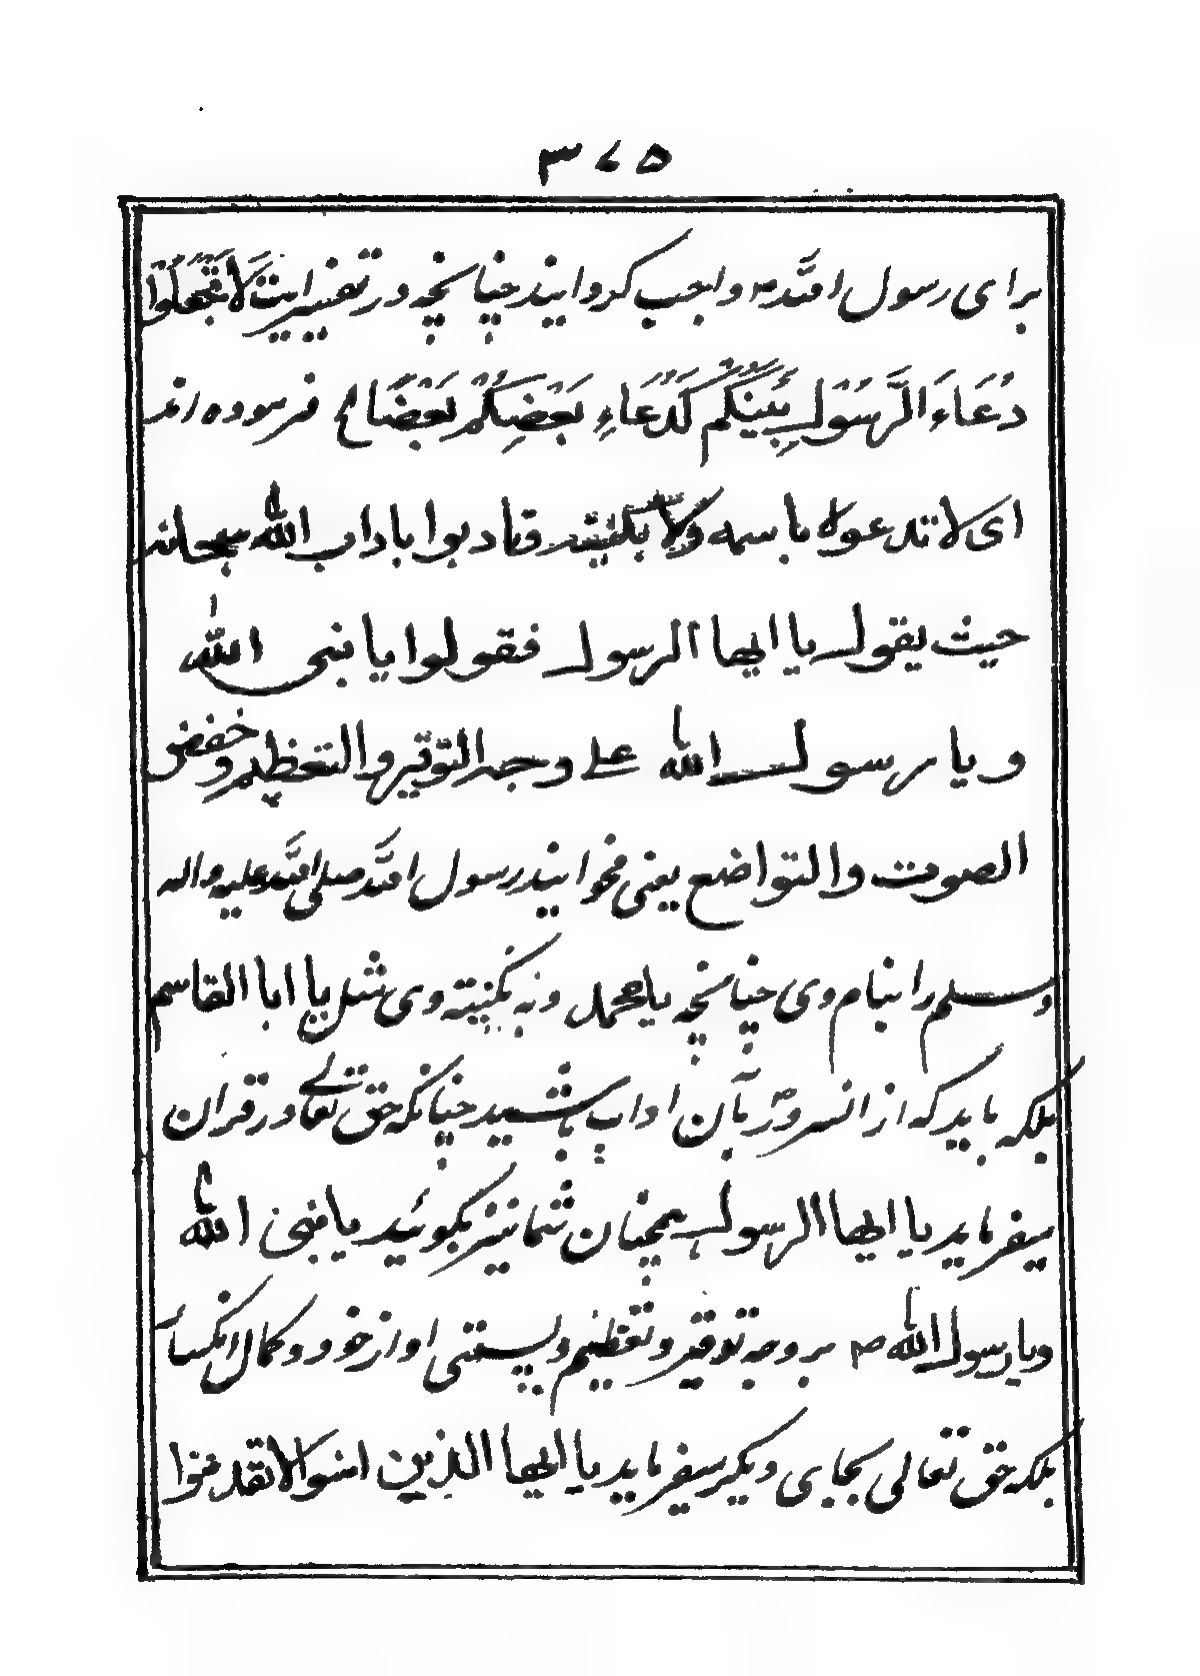 ۳۷۵
برای رسول الله ص واجب کردانیدند چنانچه در تفسیر ایت لَا تَجْعَلُوْا
دُعَاءَ الرَّسُوْلِ بَیْنَکُمْ کَدُعَاءِ بَعْضِکُمْ بَعْضًا الخ فرموده اند
ای لا تدعوه باسمه ولا بکنیته وتادبوا باداب الله سبحانه
حیث یقول یا ایها الرسول فقولوا یا نبی الله
و یا رسول الله علی وجه التوقیر والتعظیم وخفض
الصوت والتواضع یعنی مخوانید رسول الله صلی الله علیه واله
وسلم را بنام وی چنانچه یا محمد و نه بکنیته وی مثل یا ابا القاسم
بلکه باید که از انسرور بآن اداب پیش آید چنانکه حق تعالی در قران
میفرماید یا ایها الرسول همچنان شما نیز بکوئید یا نبی الله
ویا رسول الله ص بر وجه توقیر وتعظیم وپستی اواز خود و کمال انکسار
بلکه حق تعالی بجای دیکر میفرماید یا ایها الذین امنوا لا تقدموا